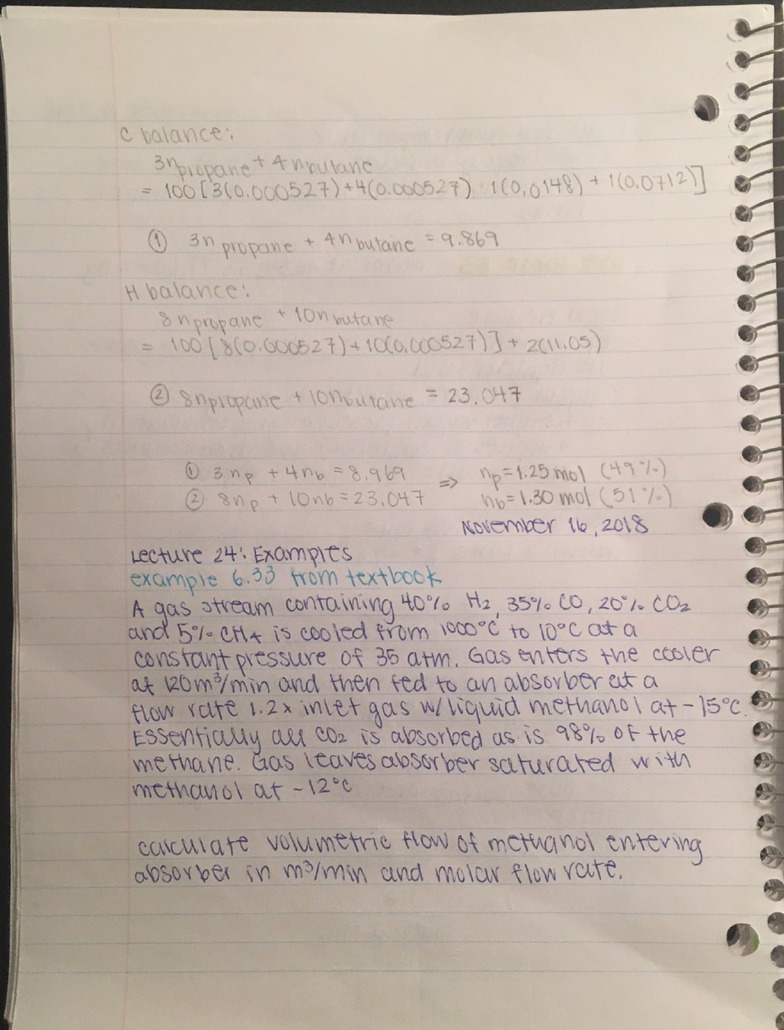 C balance:
3n propane + 4n butane
= 100 [3(0.000527)+4(0.000527) 1(0.0148) + 1(0.0712)]
① 3n propane + 4n butane = 9.869
H balance:
8n propane + 10n butane
= 100 [8(0.000527)+10(0.000527)] + 2(11.05)
② 8n propane + 10n butane = 23.047
① 3np + 4nb = 8.969 ⇒ np = 1.25 mol (49%)
② 8np + 10nb = 23.047 nb = 1.30 mol (51%)
November 16, 2018
Lecture 24: Examples
example 6.33 from textbook
A gas stream containing 40% H2, 35% CO, 20% CO2
and 5% CH4 is cooled from 1000°C to 10°C at a
constant pressure of 35 atm. Gas enters the cooler
at 120m³/min and then fed to an absorber at a
flow rate 1.2x inlet gas w/ liquid methanol at -15°C.
Essentially all CO2 is absorbed as is 98% of the
methane. Gas leaves absorber saturated with
methanol at -12°C
calculate volumetric flow of methanol entering
absorber in m³/min and molar flow rate.